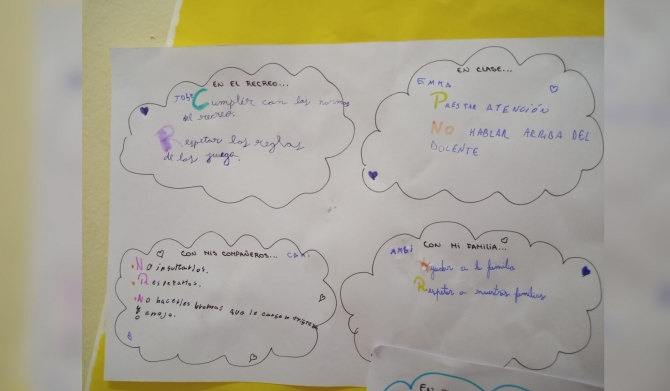 EN EL RECREO...
Cumplir con las normas
del recreo.
Respetar las reglas
de los juega.
EN CLASE...
EMMA
PRESTAR ATENCIÓN
NO HABLAR ARRIBA DEL
DOCENTE
CON MIS COMPAÑEROS...
No insultarlos.
Respetarlos.
No hacerles bromas que le causa
enojo.
AMBI CON MI FAMILIA...
Ayudar a la familia
Respetar a nuestras familias